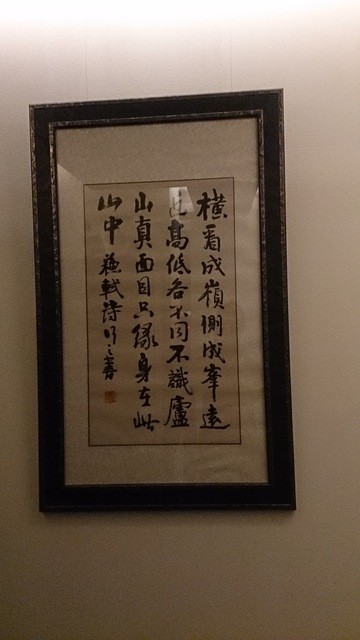 橫看成嶺側成峯遠
近高低各不同不識廬
山真面目只緣身在此
山中蘇軾詩